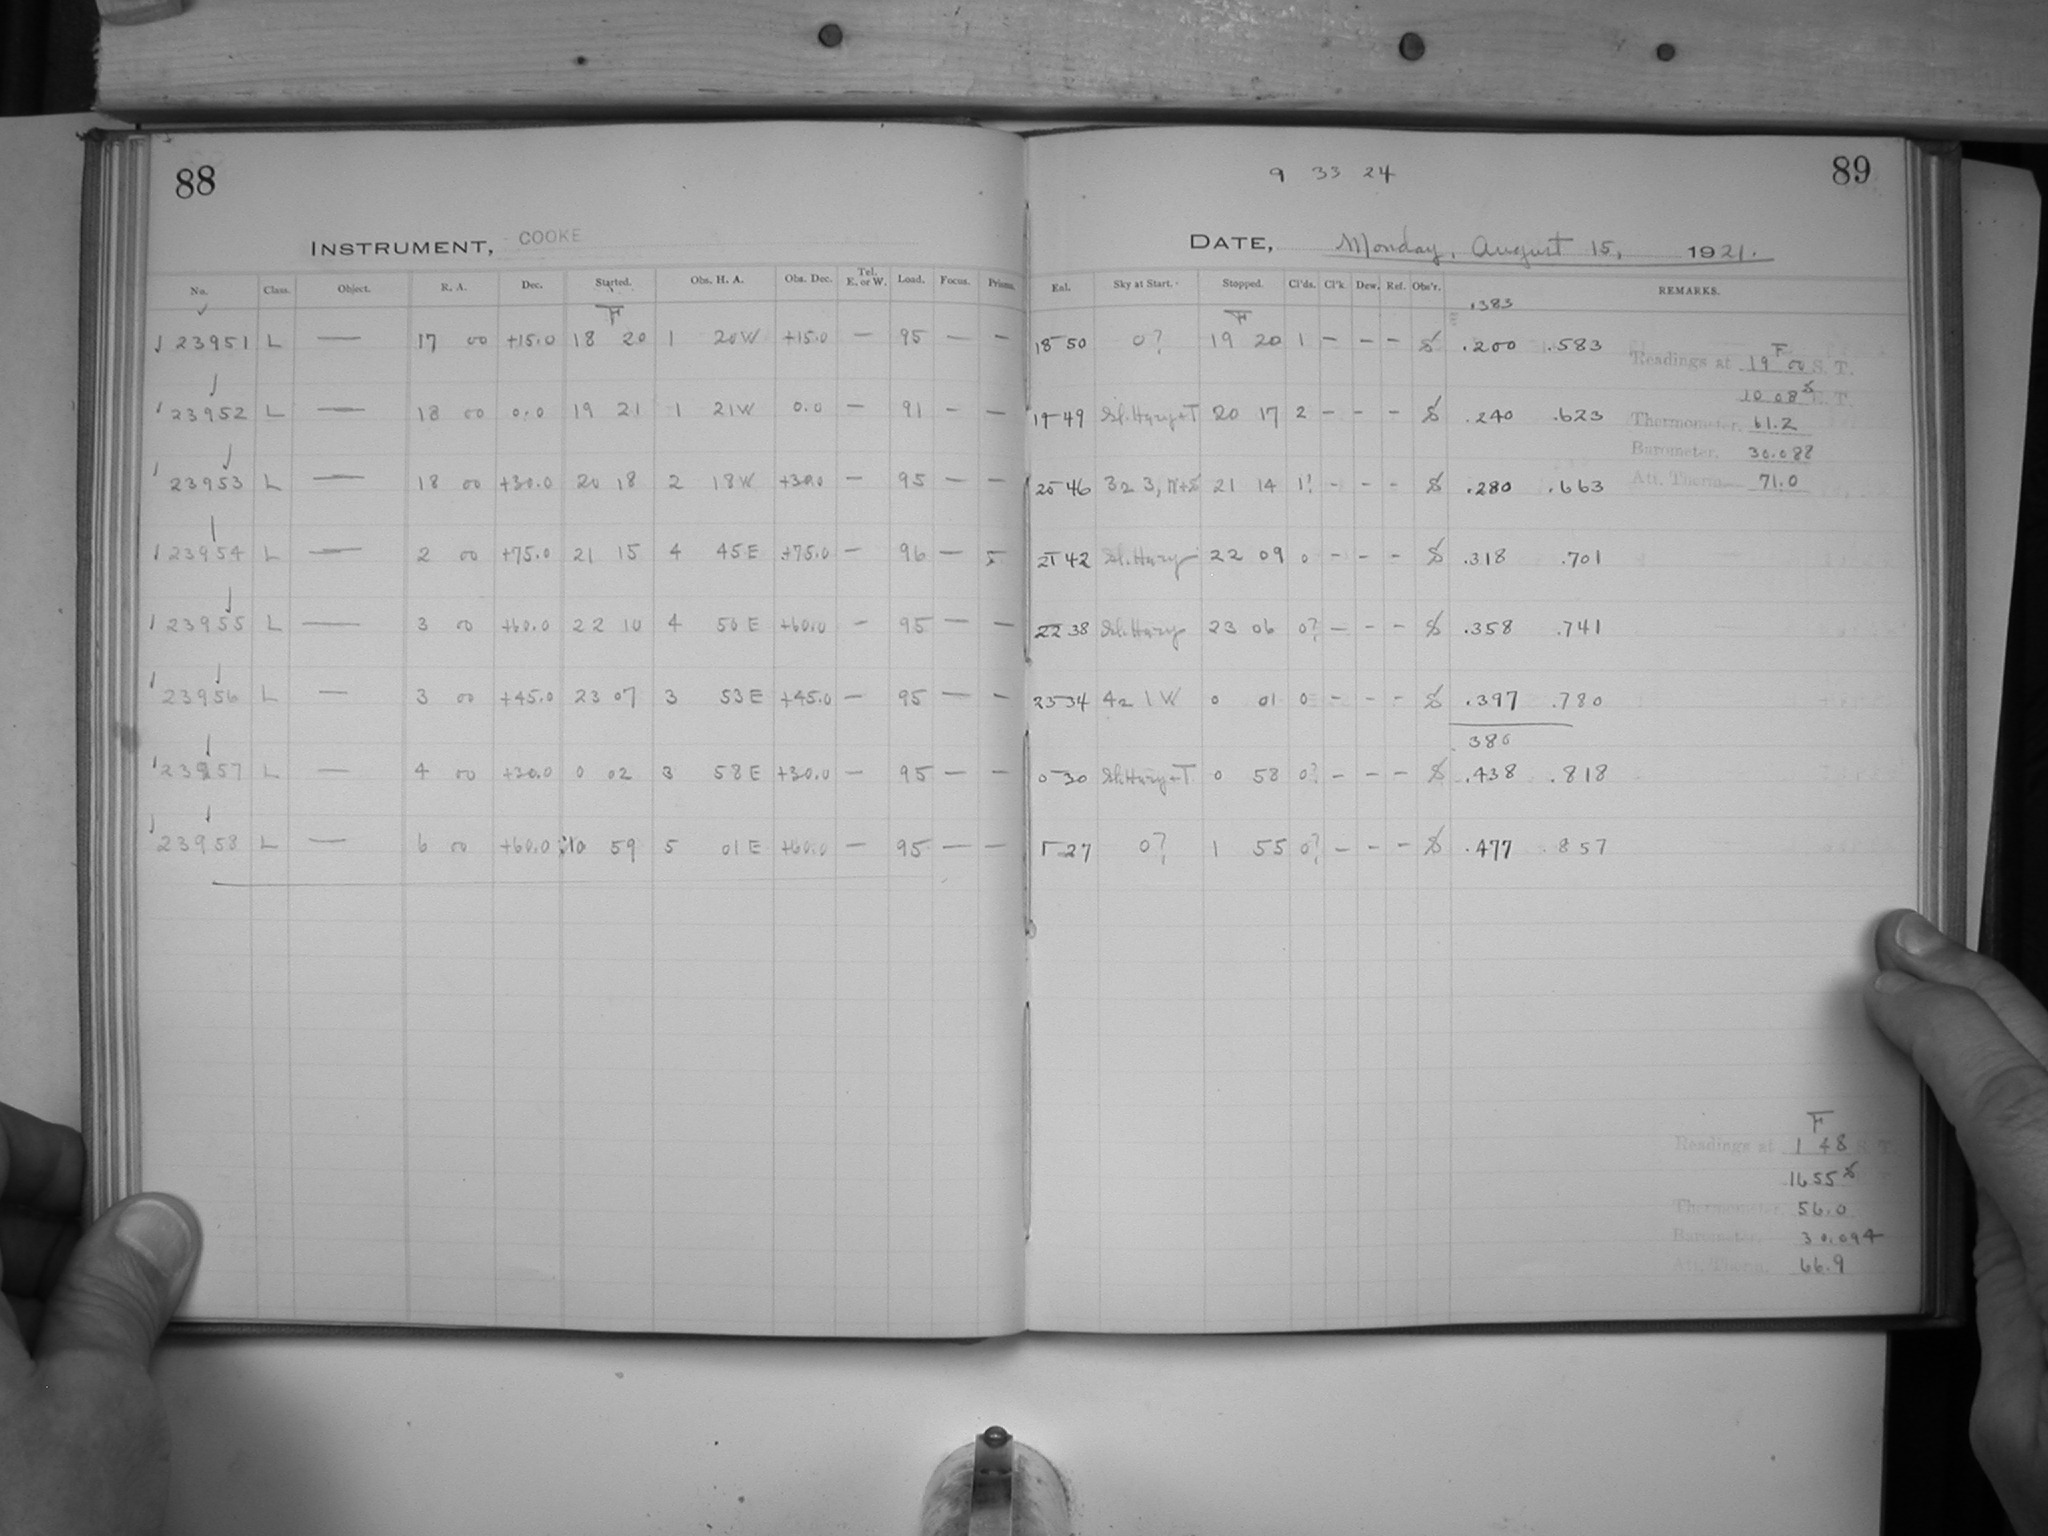 88
INSTRUMENT, COOKE
No. Class. Object. R. A. Dec. Started. Obs. H. A. Obs. Dec. Tel. E. or W. Load. Focus. Prisms.
F
23951 L — 17 00 +15.0 18 20 1 20W +15.0 — 95 — —
23952 L — 18 00 0.0 19 21 1 21W 0.0 — 91 — —
23953 L — 18 00 +30.0 20 18 2 18W +30.0 — 95 — —
23954 L — 2 00 +75.0 21 15 4 45E +75.0 — 96 —
23955 L — 3 00 +60.0 22 10 4 50E +60.0 — 95 — —
23956 L — 3 00 +45.0 23 07 3 53E +45.0 — 95 — —
23957 L — 4 00 +30.0 0 02 3 58E +30.0 — 95 — —
23958 L — 6 00 +60.0 0 59 5 01E +60.0 — 95 — —
9 33 24
89
DATE, Monday, August 15, 1921.
Exl. Sky at Start. Stopped. Cl'ds. Cl'k. Dew. Ref. Obs'r. REMARKS.
.383
F
18 50 0? 19 20 1 – – – S .200 .583
Readings at 19 00 S. T.
F
10 08 S E. T.
19 49 Sl. Hazy+T 20 17 2 – – – S .240 .623
Thermometer, 61.2
Barometer, 30.088
20 46 3a 3, N+S 21 14 1? – – – S .280 .663
Att. Therm. 71.0
21 42 Sl. Hazy 22 09 0 – – – S .318 .701
22 38 Sl. Hazy 23 06 0? – – – S .358 .741
23 34 4a 1 W 0 01 0 – – – S .397 .780
.380
0 30 Sl. Hazy+T 0 58 0? – – – S .438 .818
1 27 0? 1 55 0? – – – S .477 .857
F
Readings at 1 48 S. T.
16 55 S
Thermometer, 56.0
Barometer, 30.094
Att. Therm. 66.9